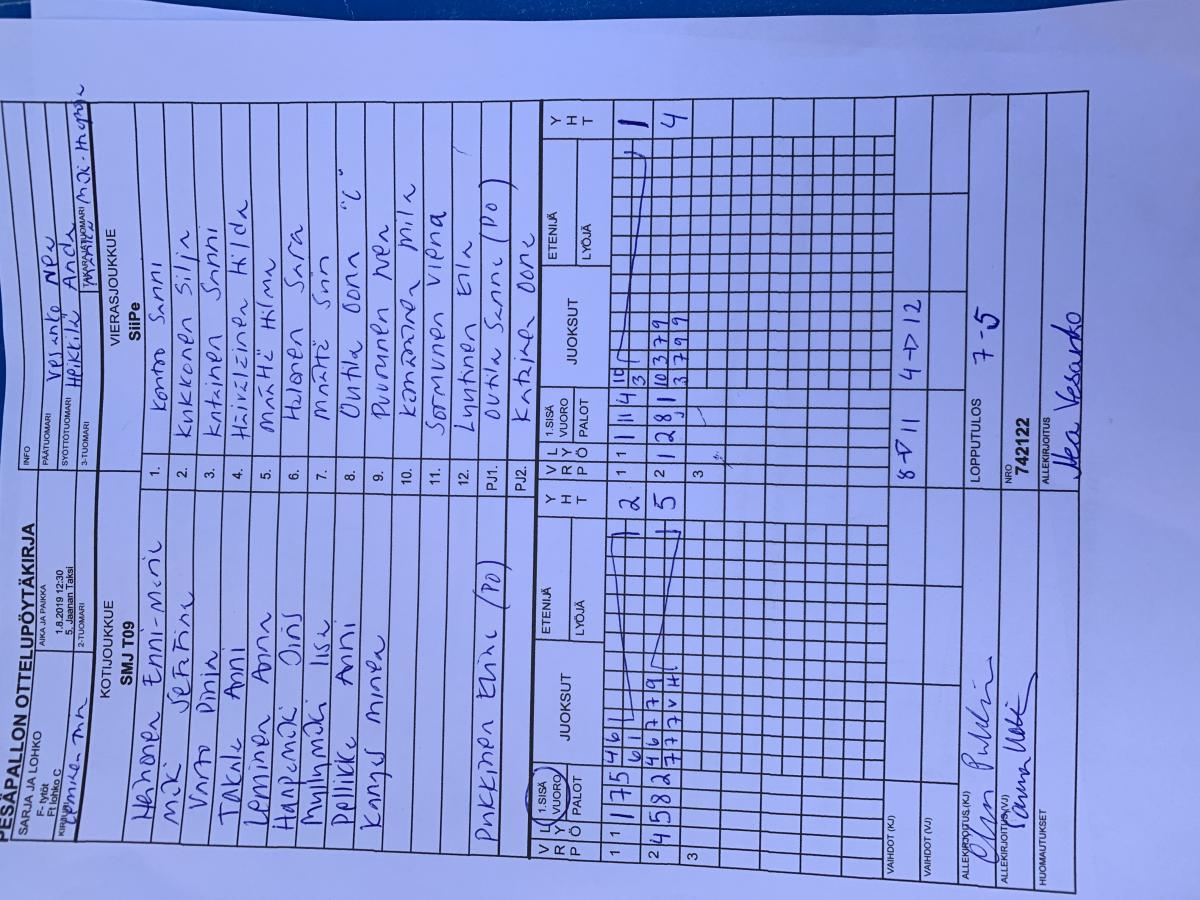 PESÄPALLON OTTELUPÖYTÄKIRJA
SARJA JA LOHKO
F- tytöt
Ft lohko C
AIKA JA PAIKKA
1.8.2019 12:30
5. Jaanan Taksi
INFO
PÄÄTUOMARI Vesanko Nea
SYÖTTÖTUOMARI Heikkilä Anda
2-TUOMARI
3-TUOMARI
TAKARAJATUOMARI
KOTIJOUKKUE
SMJ T09
VIERASJOUKKUE
SiiPe
Enni-Maria
1. Kontio Sanni
Mäki Serafina
2. Kukkonen Silja
Varro Pinja
3. Katainen Sanni
Takala Anni
4. Häiväläinen Hilda
Leminen Anna
5. Määttä Hilma
Haapamäki
6. Halonen Sara
Myllymäki Iisa
7. Määttä Siiri
Pellikka Anni
8. Outila Oona "C"
Kangas Minea
9. Puurunen
10. Mila
11. Sormunen Viena
12. Lyytinen Eila
Pukkinen Elina (PO)
PJ1. Outila Sanna (PO)
PJ2. Katajae Oona
V R P
L Y Ö
1.SISÄ VUORO
PALOT
JUOKSUT
ETENIJÄ
LYÖJÄ
Y H T
V R P
L Y Ö
1.SISÄ VUORO
PALOT
JUOKSUT
ETENIJÄ
LYÖJÄ
Y H T
1 1 1 7 5 4 6 1 2
6 1
1 1 1 11 4 10 1
3
2 4 5 8 2 4 6 7 7 9 5
7 7 7 V H
2 1 2 8 1 10 3 7 9 4
3 7 9 9
3
3
VAIHDOT (KJ)
8→11 4→12
VAIHDOT (VJ)
ALLEKIRJOITUS (KJ)
LOPPUTULOS 7-5
ALLEKIRJOITUS (VJ)
NRO
742122
HUOMAUTUKSET
ALLEKIRJOITUS
Nea Vesanko